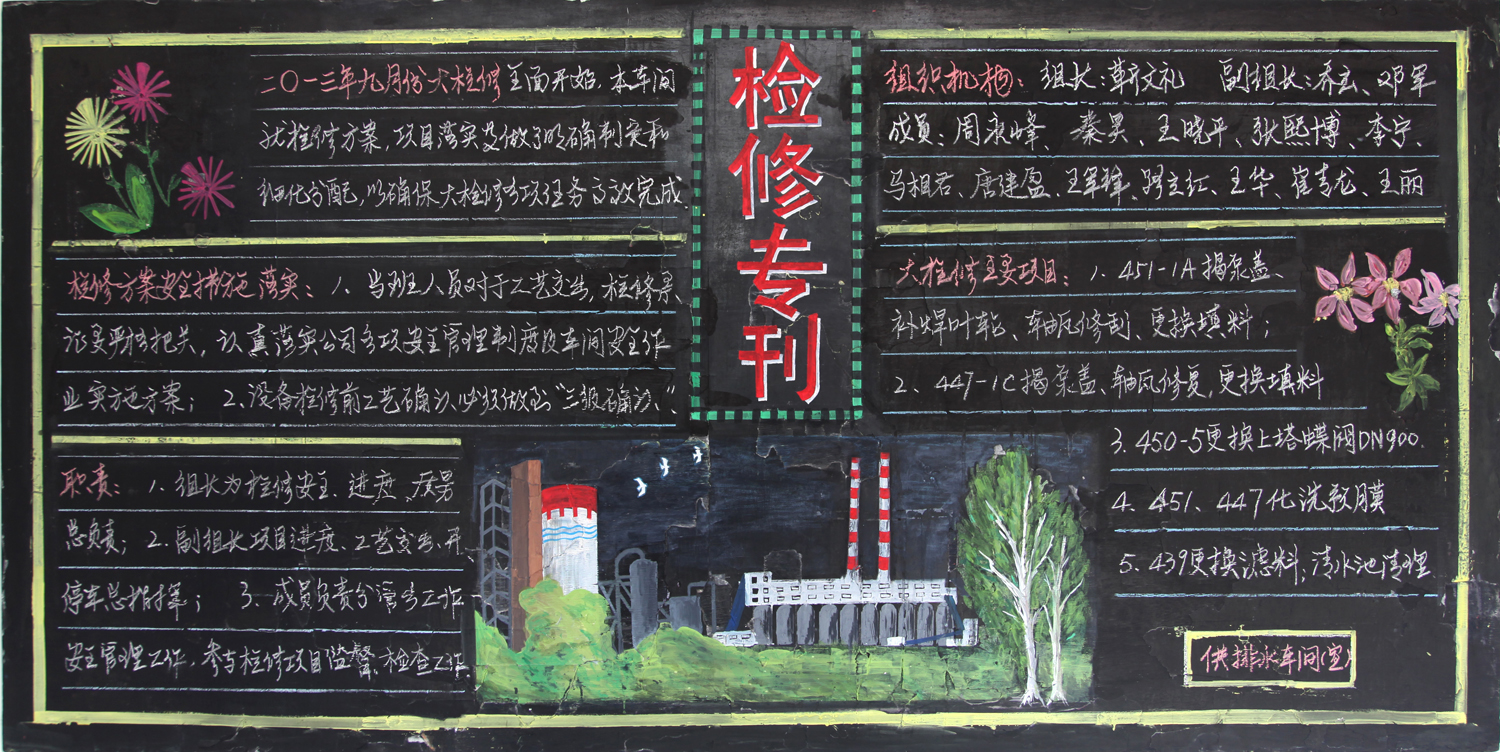 检修专刊
二〇一三年九月份大检修全面开始,本车间
就检修方案,项目落实及做了明确制度和
细化分配,以确保大检修各项任务高效完成
检修方案安全措施落实:1、当班人员对于工艺交出,检修票、
证要严格把关,认真落实公司各项安全管理制度及车间安全作
业实施方案;2、设备检修前工艺确认必须做到“三级确认”、
职责:1、组长为检修安全、进度、质量
总负责;2、副组长项目进度、工艺交出、开
停车总指挥;3、成员负责分管出工作
安全管理工作,参与检修项目监督、检查工作
组织机构:组长:靳文礼 副组长:乔云、邓军
成员:周永峰、秦昊、王晓平、张熙博、李宁、
马相君、唐建盈、王军锋、路立红、王华、崔青龙、王丽
大检修主要项目:1、451-1A揭泵盖、
补焊叶轮、轴瓦修刮、更换填料;
2、447-1C揭泵盖、轴瓦修复,更换填料
3、450-5更换上塔蝶阀DN900.
4、451、447化洗预膜
5、439更换滤料,清水池清理
供排水车间(宣)